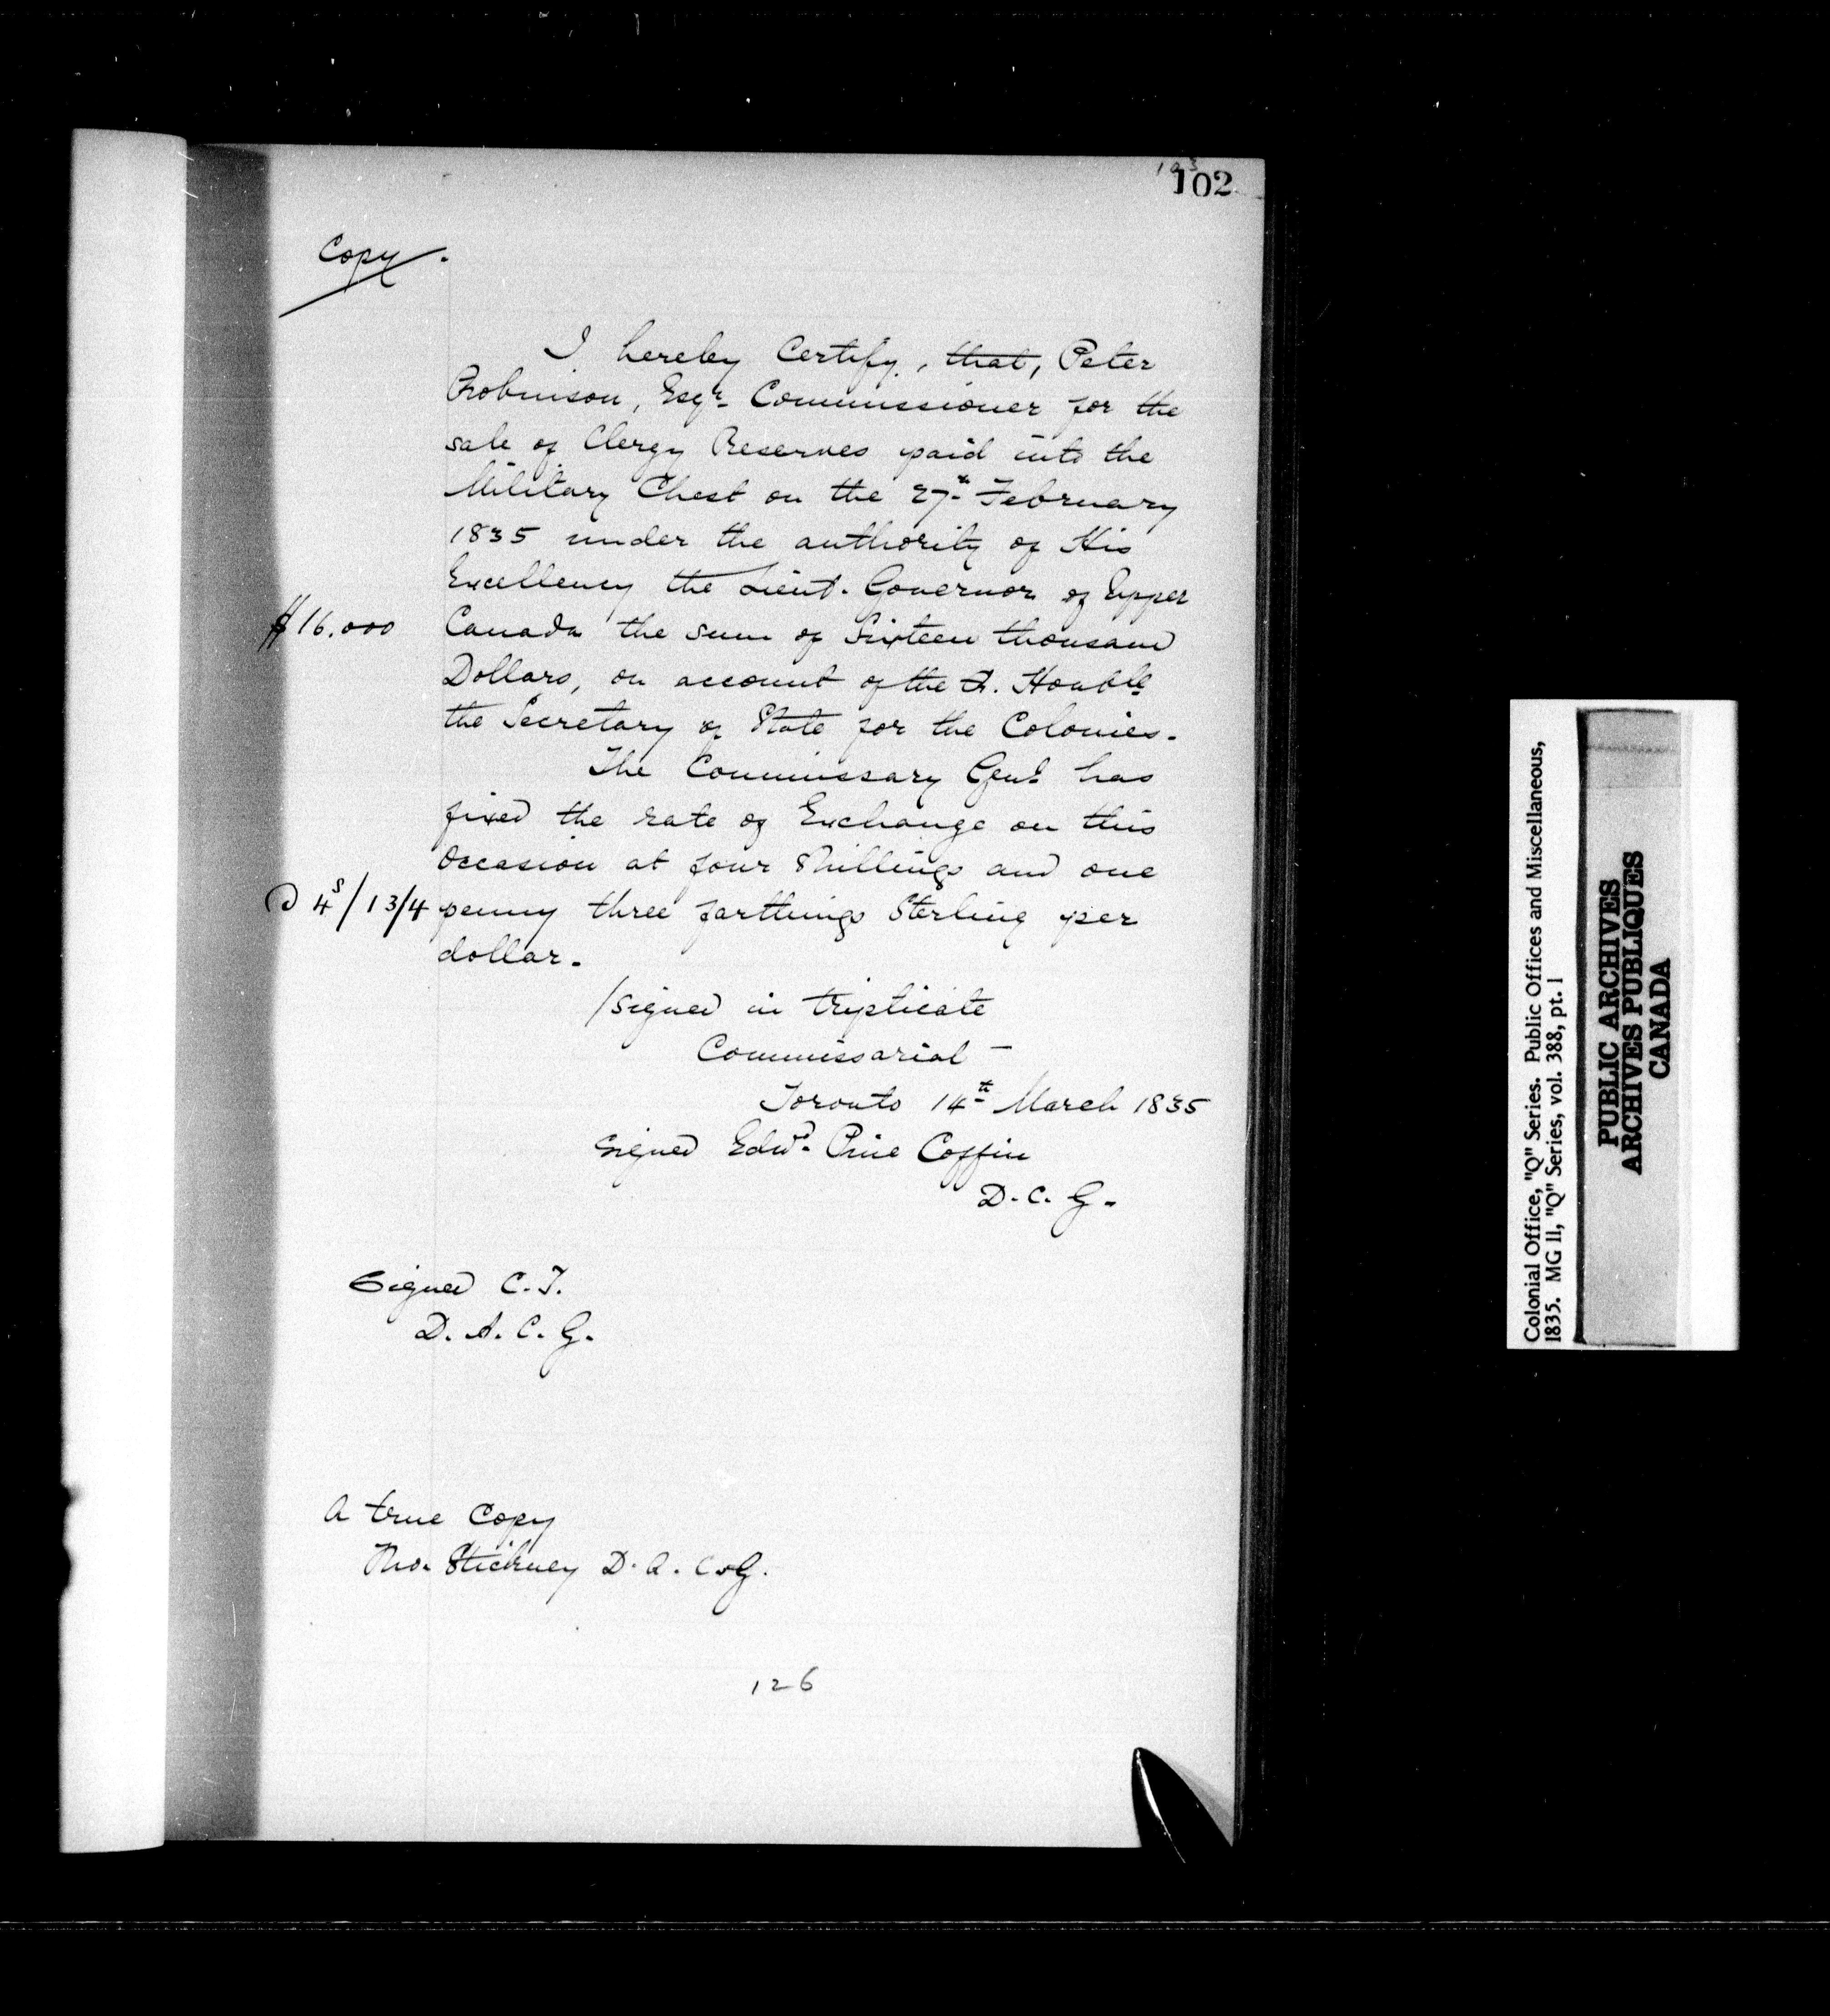 103
102
Copy.
I hereby Certify, that, Peter
Robinson, Esqr. Commissioner for the
sale of Clergy Reserves paid into the
Military Chest on the 27th February
1835 under the authority of His
Excellency the Lieut. Governor of Upper
$16.000 Canada the sum of Sixteen thousand
Dollars, on account of the Honble
the Secretary of State for the Colonies.
The Commissary Genl has
fixed the rate of Exchange on this
Occasion at four Shillings and one
@ 4s/1 3/4 penny three farthings Sterling per
dollar.
/signed in triplicate
Commissariat –
Toronto 14th March 1835
Signed Edwd. Pine Coffin
D. C. G.
Signed C. F.
D. A. C. G.
A true Copy
Thos. Stickney D. A. C. G.
126
Colonial Office, "Q" Series. Public Offices and Miscellaneous,
1835. MG 11, "Q" Series, vol. 388, pt. 1
PUBLIC ARCHIVES
ARCHIVES PUBLIQUES
CANADA